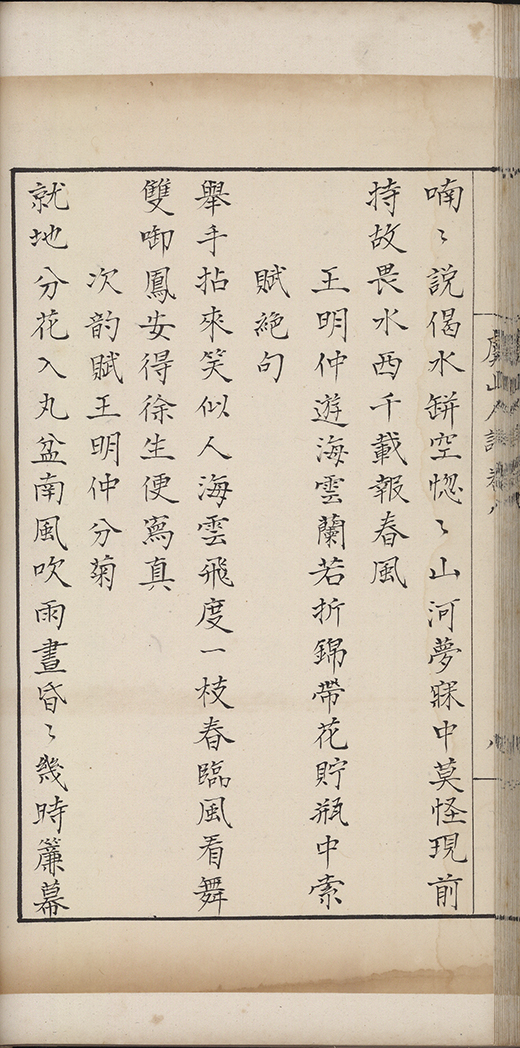 喃〻說偈水缾空惚〻山河夢寐中莫怪現前
持故畏水西千載報春風
王明仲遊海雲蘭若折錦帶花貯瓶中索
賦絕句
舉手拈來笑似人海雲飛度一枝春臨風看舞
雙啣鳳安得徐生便寫真
次韵賦王明仲分菊
就地分花入瓦盆南風吹雨晝昏〻幾時簾幕
山人詩 卷八
八